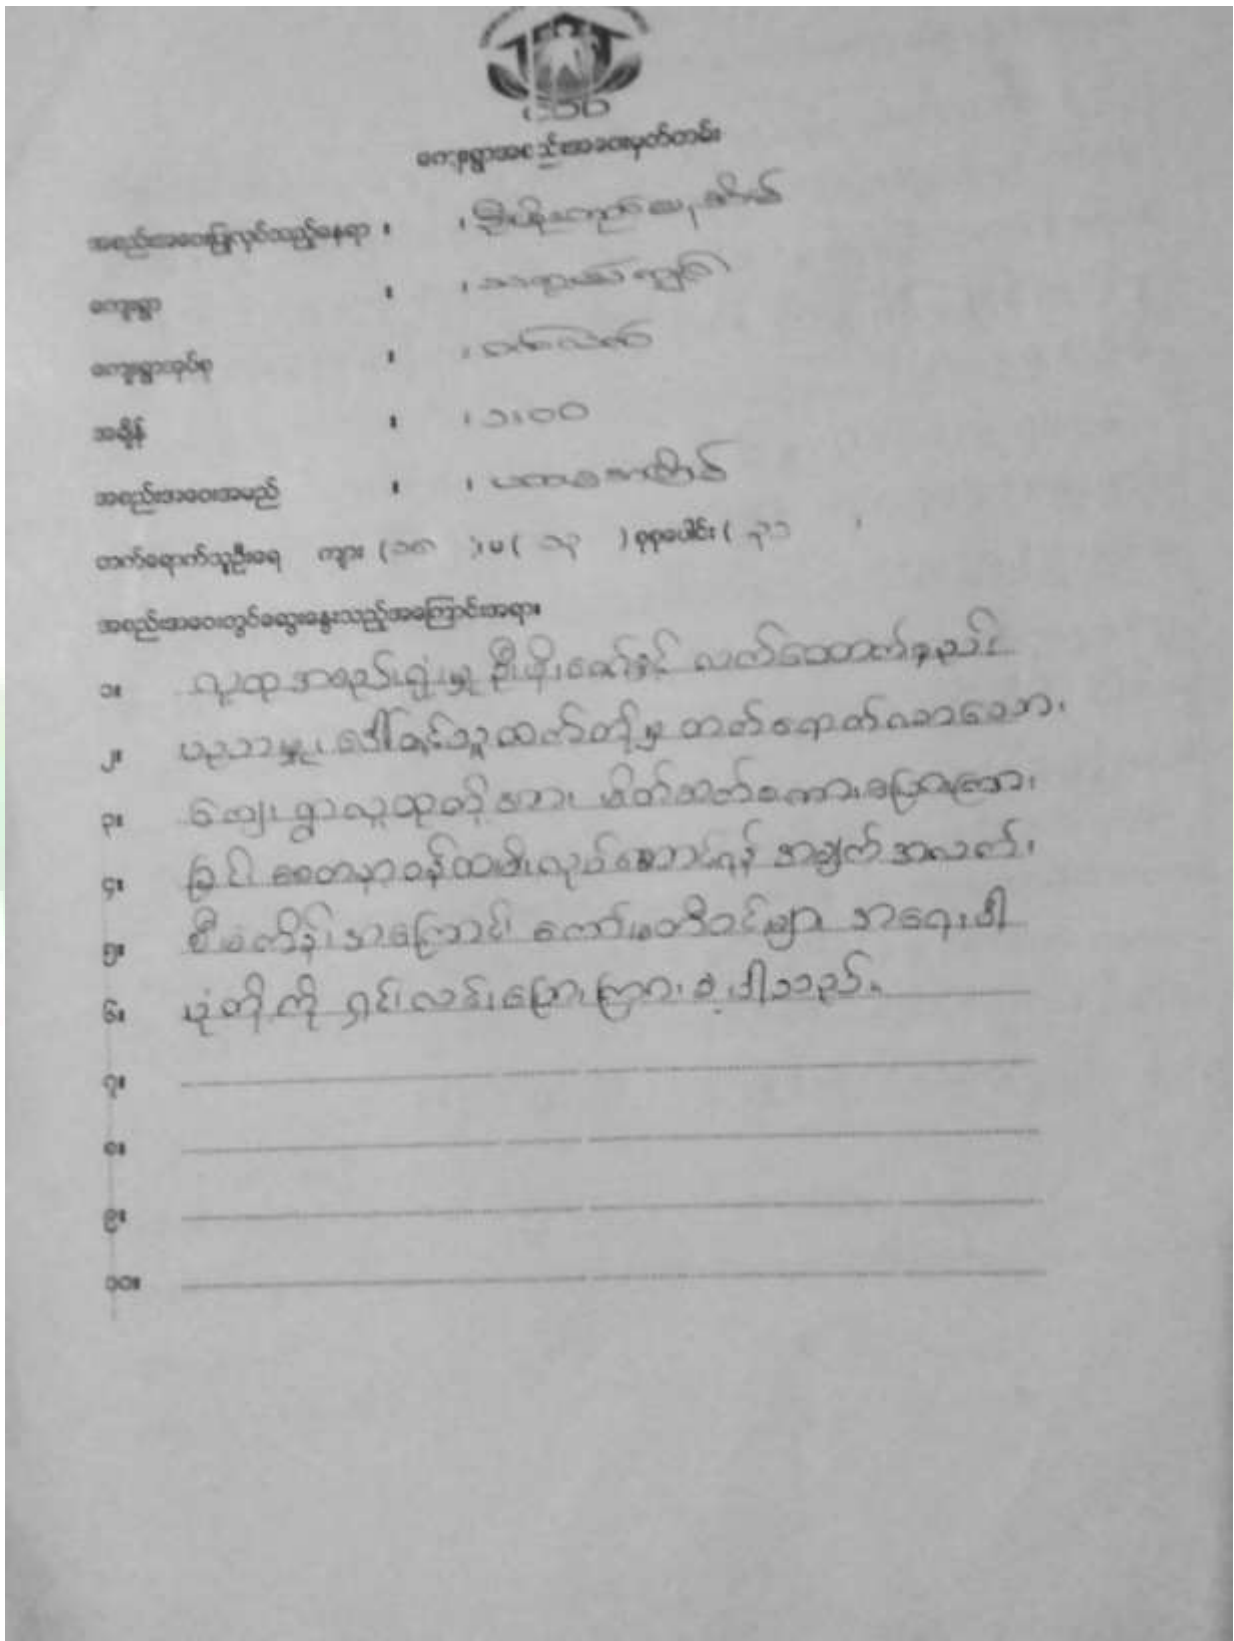 ကျေးရွာအစည်းအဝေးမှတ်တမ်း
အစည်းအဝေးပြုလုပ်သည့်နေရာ ။
ကျေးရွာ ။
ကျေးရွာအုပ်စု ။
အချိန် ။ ၁း၀၀
အစည်းအဝေးအမည် ။ ပဏာမအကြိမ်
တက်ရောက်သူဦးရေ ကျား (၁၈ )၊ မ ( ၁၃ ) စုစုပေါင်း ( ၃၁
အစည်းအဝေးတွင်ဆွေးနွေးသည့်အကြောင်းအရာ။
၁။ လူထုအစည်းရုံးမှူး ဦးဖိုးဇော်နှင့် လက်ထောက်နည်း
၂။ ပညာမှူး ဒေါ်ခင်သူထက်တို့မှ တက်ရောက်လာသော
၃။ ကျေးရွာလူထုတို့အား မိတ်ဆက်စကားပြောကြား
၄။ ခြင်း စေတနာ့ဝန်ထမ်းလုပ်ဆောင်ရန် အချက်အလက်၊
၅။ စီမံကိန်းအကြောင်း ကော်မတီဝင်များ အရေးပါ
၆။ ပုံတို့ကို ရှင်းလင်းပြောကြားခဲ့ပါသည်။
၇။
၈။
၉။
၁၀။